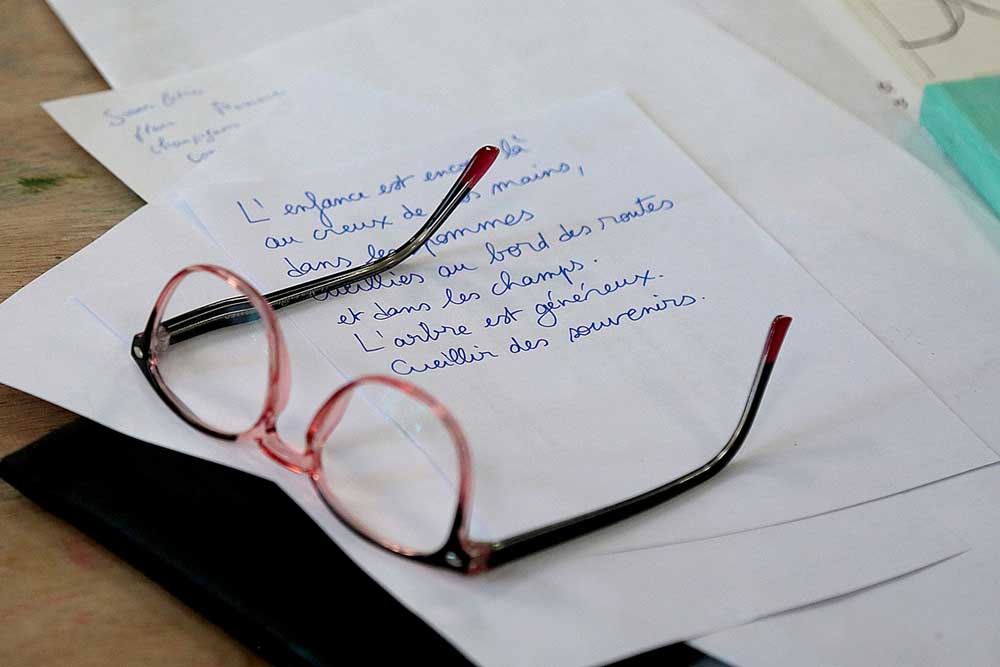 champignons
L'enfance est encore là
au creux de nos mains,
dans les pommes
cueillies au bord des routes
et dans les champs.
L'arbre est généreux.
Cueillir des souvenirs.